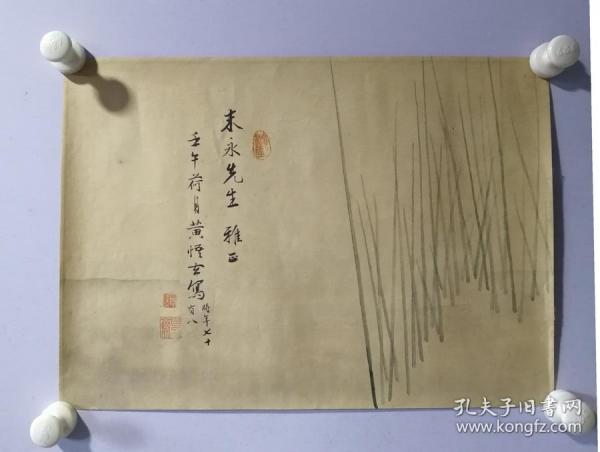 末永先生 雅正
壬午荷月黄悟玄寫
时年七十
有八
孔夫子旧书网
www.kongfz.com